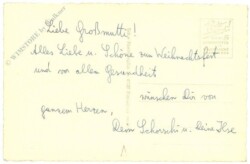 Liebe Großmutti!
Alles Liebe u. Schöne zum Weihnachtsfest
und vor allem Gesundheit
wünschen Dir von
ganzem Herzen,
Deine Ilse